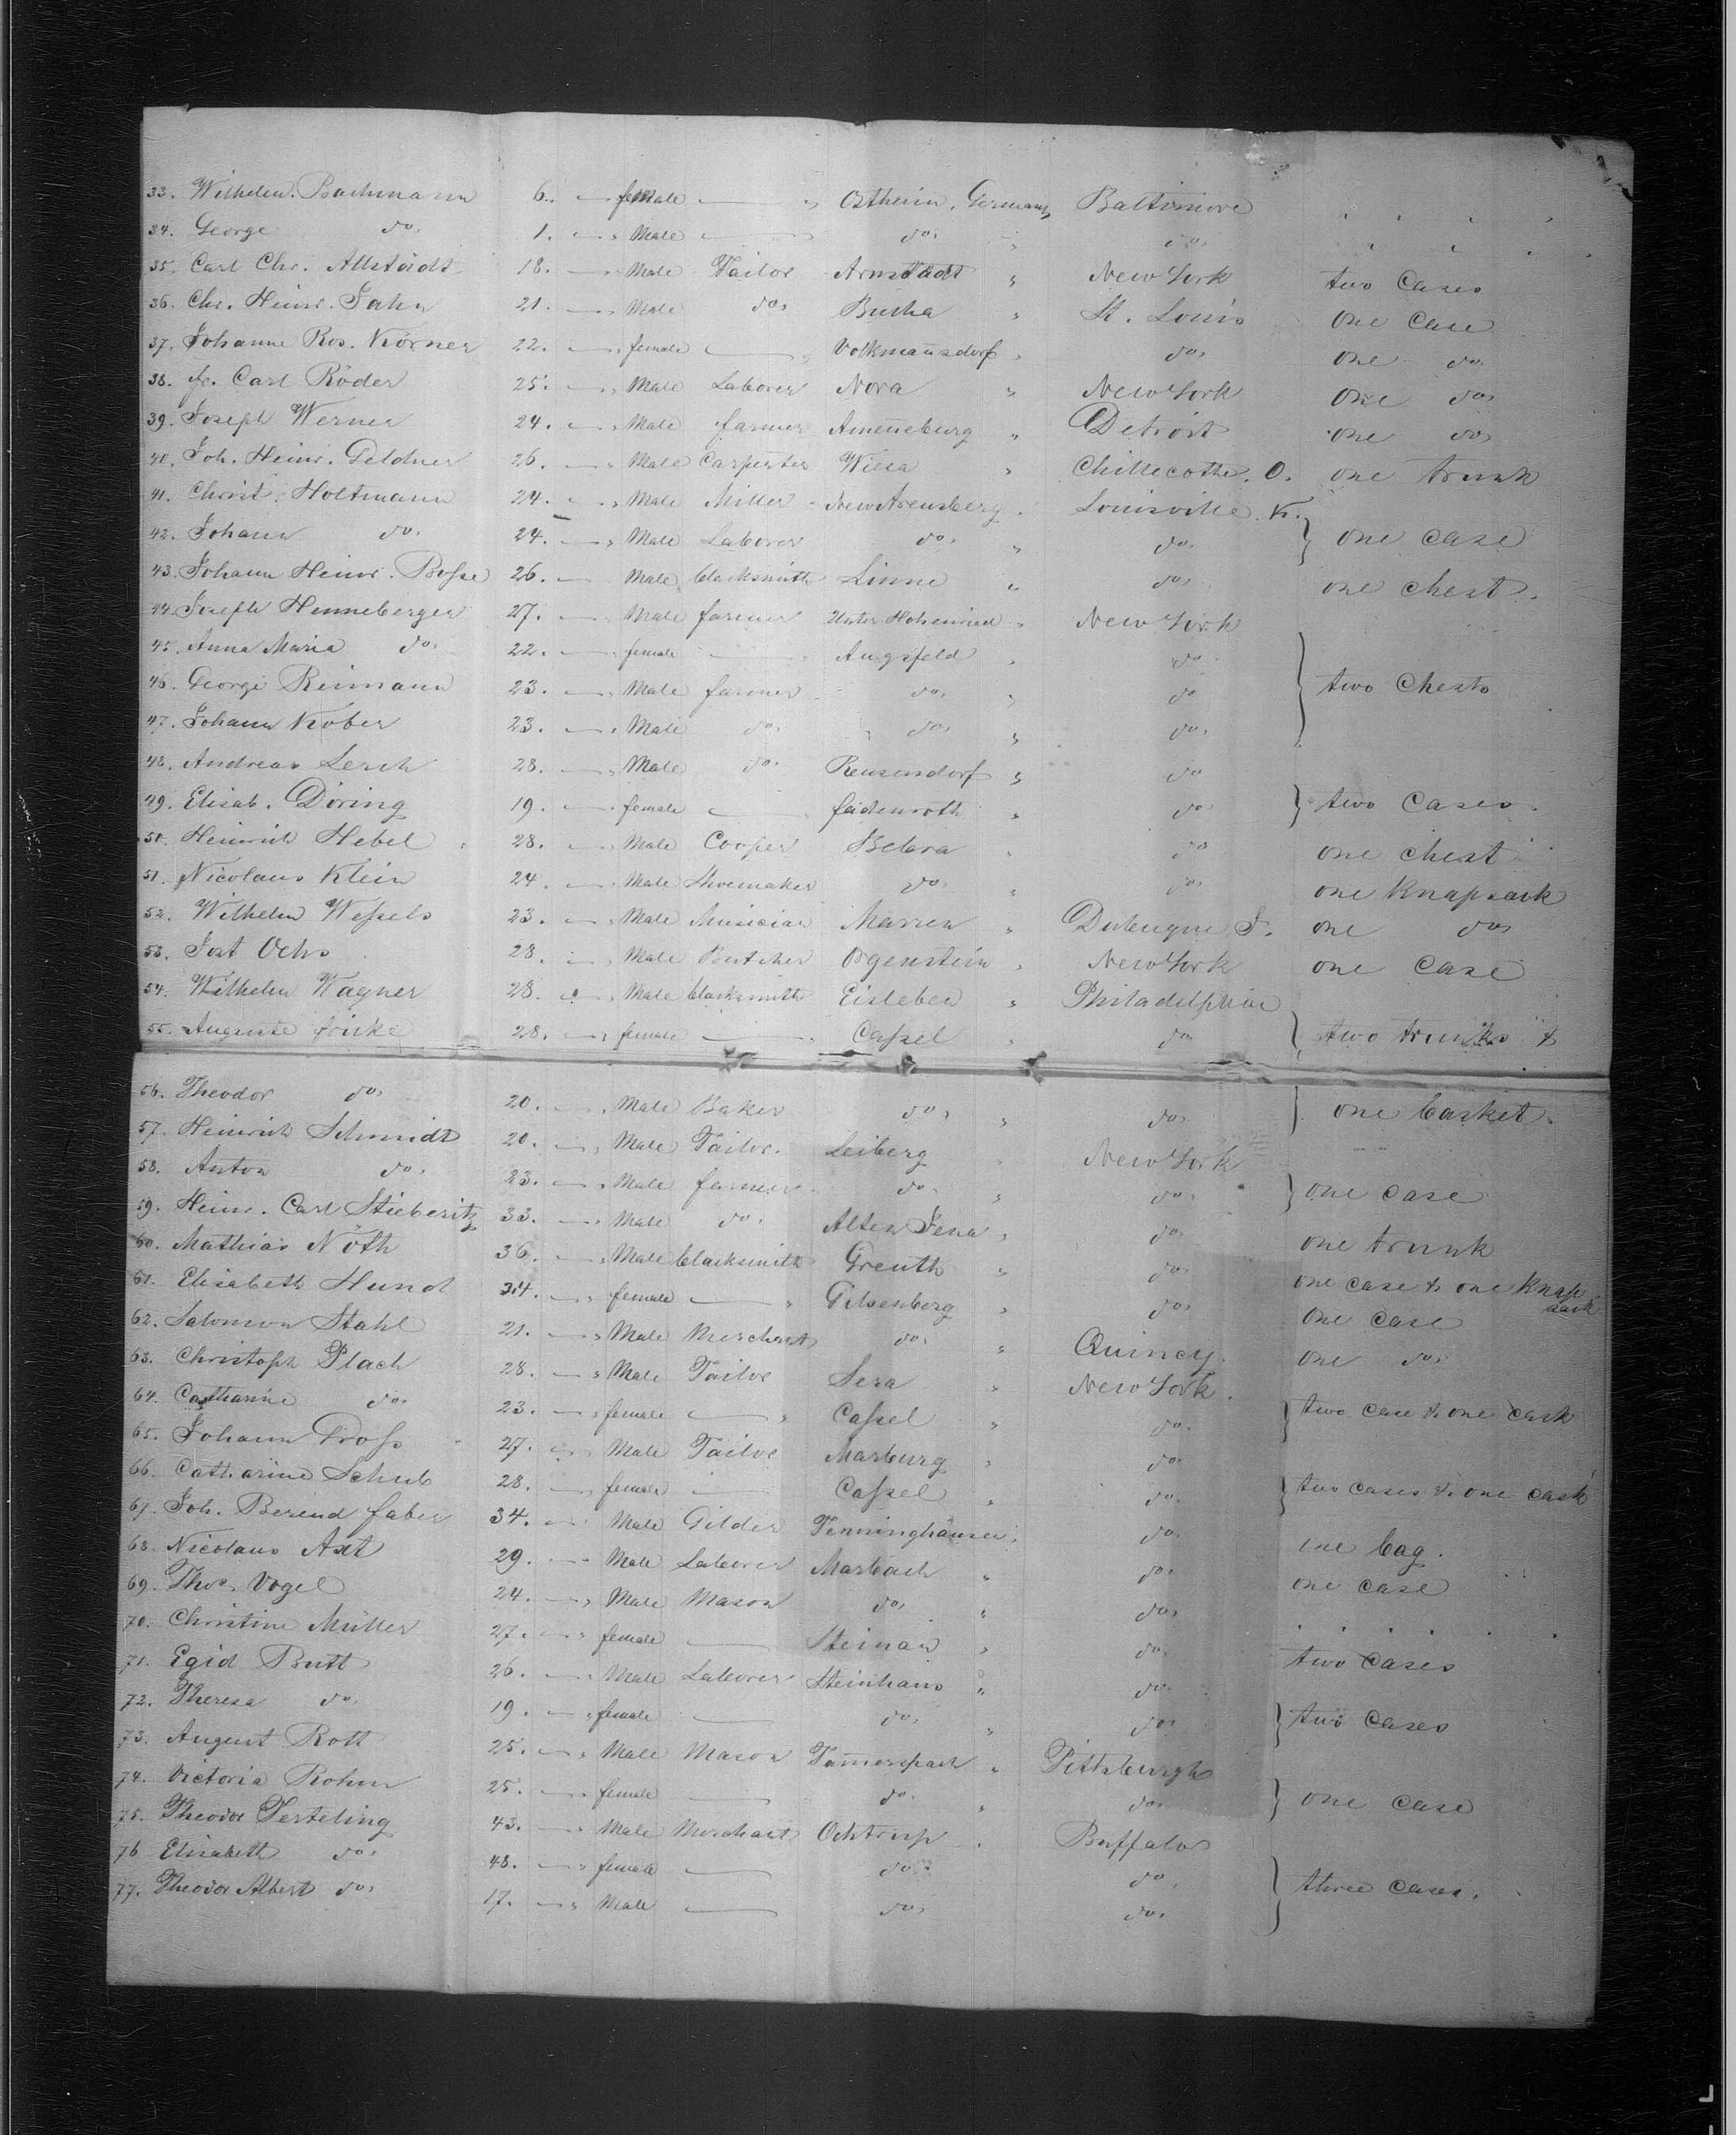 33. Wilhelm. Bachmann 6. female Ostheim, Germany Baltimore
34. George do. 1. Male do. do.
35. Carl Chr. Allstädt 18. Male Tailor Arnstadt " New York two Cases
36. Chr. Heinr. Jahn 21. Male do. Bucha " St. Louis one Case
37. Johanne Ros. Körner 22. female Volkmannsdorf " do. one do.
38. fr. Carl Röder 25. Male Laborer Nora " New York one do.
39. Joseph Werner 24. Male farmer Ameneburg " Detroit one do.
40. Joh. Heinr. Geldner 26. Male Carpenter Wiesa " Chillecothe. O. one trunk
41. Christ. Holtmann 24. Male Miller New Arensberg " Louisville. K.
42. Johann do. 24. Male Laborer do. " do. } one case
43. Johann Heinr. Bosse 26. Male blacksmith Linne " do. one chest.
44. Joseph Henneberger 27. Male farmer Unter Hohenried " New York
45. Anna Maria do. 22. female Augsfeld " do.
46. George Reimann 23. Male farmer do. " do } two Chests
47. Johann Kober 23. Male do. do. " do.
48. Andreas Lerch 28. Male do. Reusendorf " do
49. Elisab. Döring 19. female feidenroth " do. } two Cases.
50. Heinrich Hebel 28. Male Cooper Bebra " do one chest
51. Nicolaus Klein 24. Male Shoemaker do. " do. one Knapsack
52. Wilhelm Wessels 23. Male Musician " Dubuque J. one do.
53. Jost Ochs 28. Male Butcher Orgenstein " New York one Case
54. Wilhelm Wagner 28. Male blacksmith Eisleben " Philadelphia
55. Auguste fricke 28. female Cassel " do } two trunks &
56. Theodor do. 20. Male Baker do. " do. } one basket.
57. Heinrich Schmidt 20. Male Tailor. Leiberg " New York
58. Anton do. 23. Male farmer do. " do. } one case
59. Heinr. Carl Stieberitz 33. Male do. Alten Jena " do. one trunk
60. Mathias Nöth 36. Male blacksmith Greuth " do. one case & one Knap
sack
61. Elisabeth Hund 34. female Gilsenberg " do. one case
62. Salomon Stahl 21. Male Merchant do. " Quincy. one do.
63. Christoph Plach 28. Male Tailor Sera " New York.
64. Catharine do. 23. female Cassel " do. } two case & one cask
65. Johann Gross 27. Male Tailor Marburg " do.
66. Catharine Schub 28. female Cassel " do. } two cases & one cask
67. Joh. Berend faber 34. Male Gilder Tenninghausen. do. one bag.
68. Nicolaus Axt 29. Male Laborer Marbach " do. one case
69. Thos. Vogel 24. Male Mason do. " do.
70. Christine Müller 27. female Steinau " do. two Cases
71. Egid Butt 26. Male Laborer Steinhaus " do.
72. Theresa do. 19. female do. " do. } two Cases
73. August Rott 25. Male Mason " Pittsburgh
74. Victoria Rohm 25. female do. " do. } one case
75. Theodor Terteling 43. Male Merchant Ochtrup " Buffalo
76 Elisabeth do. 48. female do. do.
77. Theodor Albert do. 17. Male do. do. } three cases.